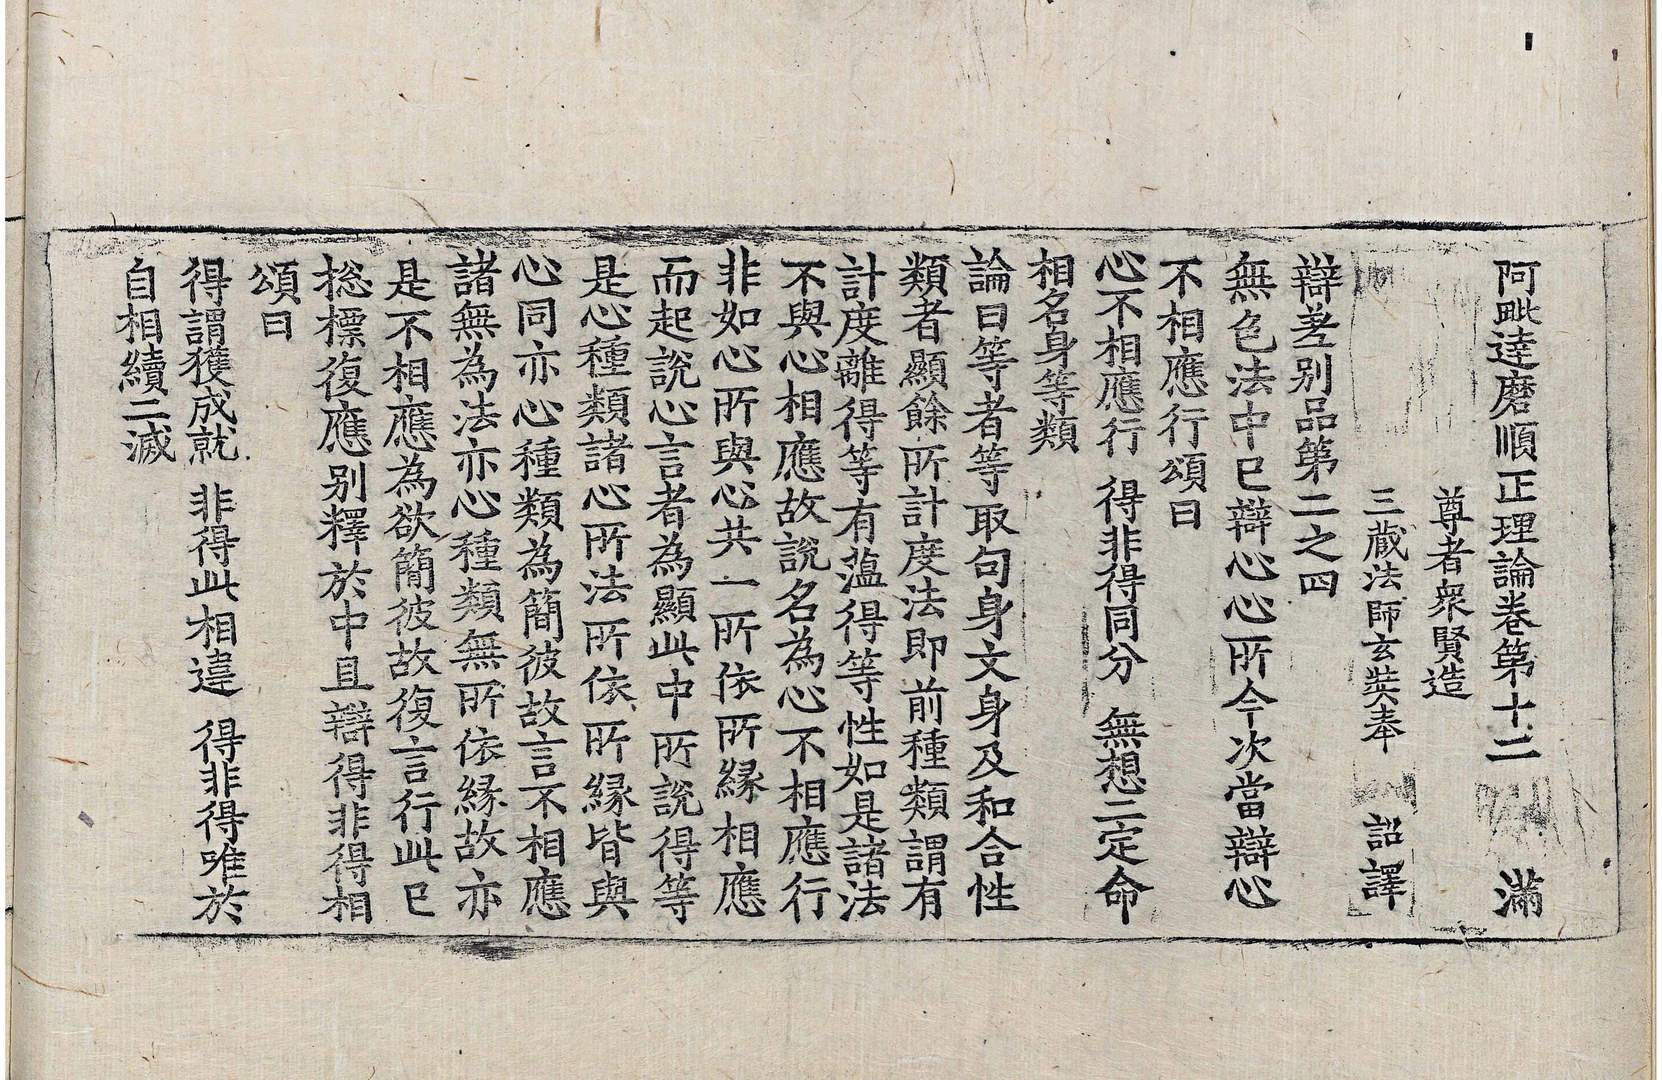 阿毗達磨順正理論卷第十二　滿
尊者衆賢造
三藏法師玄奘奉　詔譯
辯差別品第二之四
無色法中已辯心心所今次當辯心
不相應行頌曰
心不相應行　得非得同分　無想二定命
相名身等類
論曰等者等取句身文身及和合性
類者顯餘所計度法即前種類謂有
計度離得等有蘊得等性如是諸法
不與心相應故說名為心不相應行
非如心所與心共一所依所緣相應
而起說心言者為顯此中所說得等
是心種類諸心所法所依所緣皆與
心同亦心種類為簡彼故言不相應
諸無為法亦心種類無所依緣故亦
是不相應為欲簡彼故復言行此已
捴標復應別釋於中且辯得非得相
頌曰
得謂獲成就　非得此相違　得非得唯於
自相續二滅